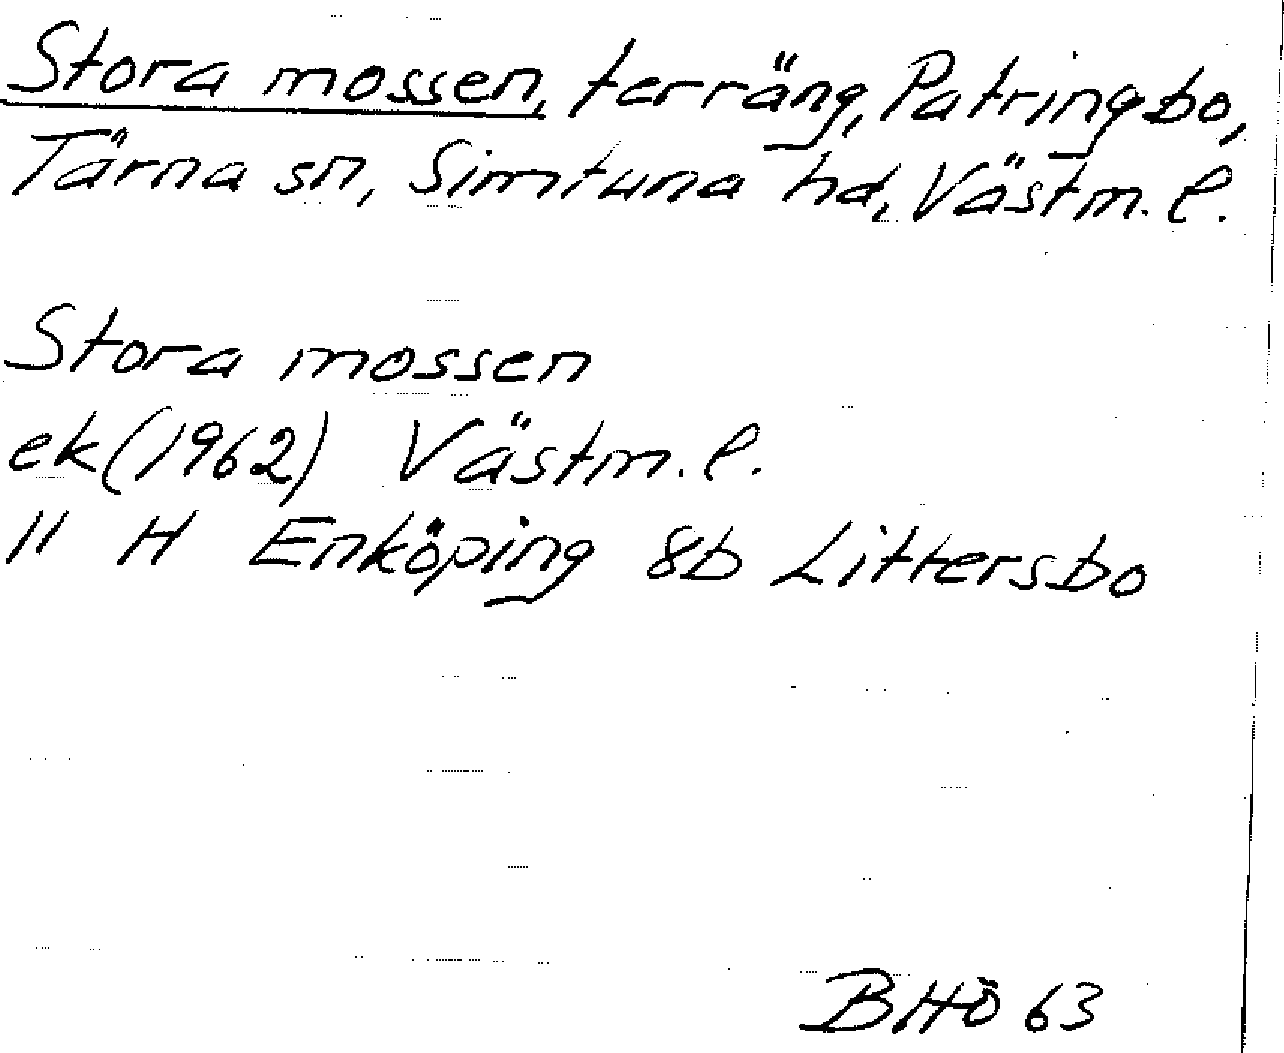 Stora mossen, terräng, Patringbo,
Tärna sn, Simtuna hd, Västm. l.
Stora mossen
ek (1962) Västm. l.
11 H Enköping 8b Littersbo
BHÖ 63